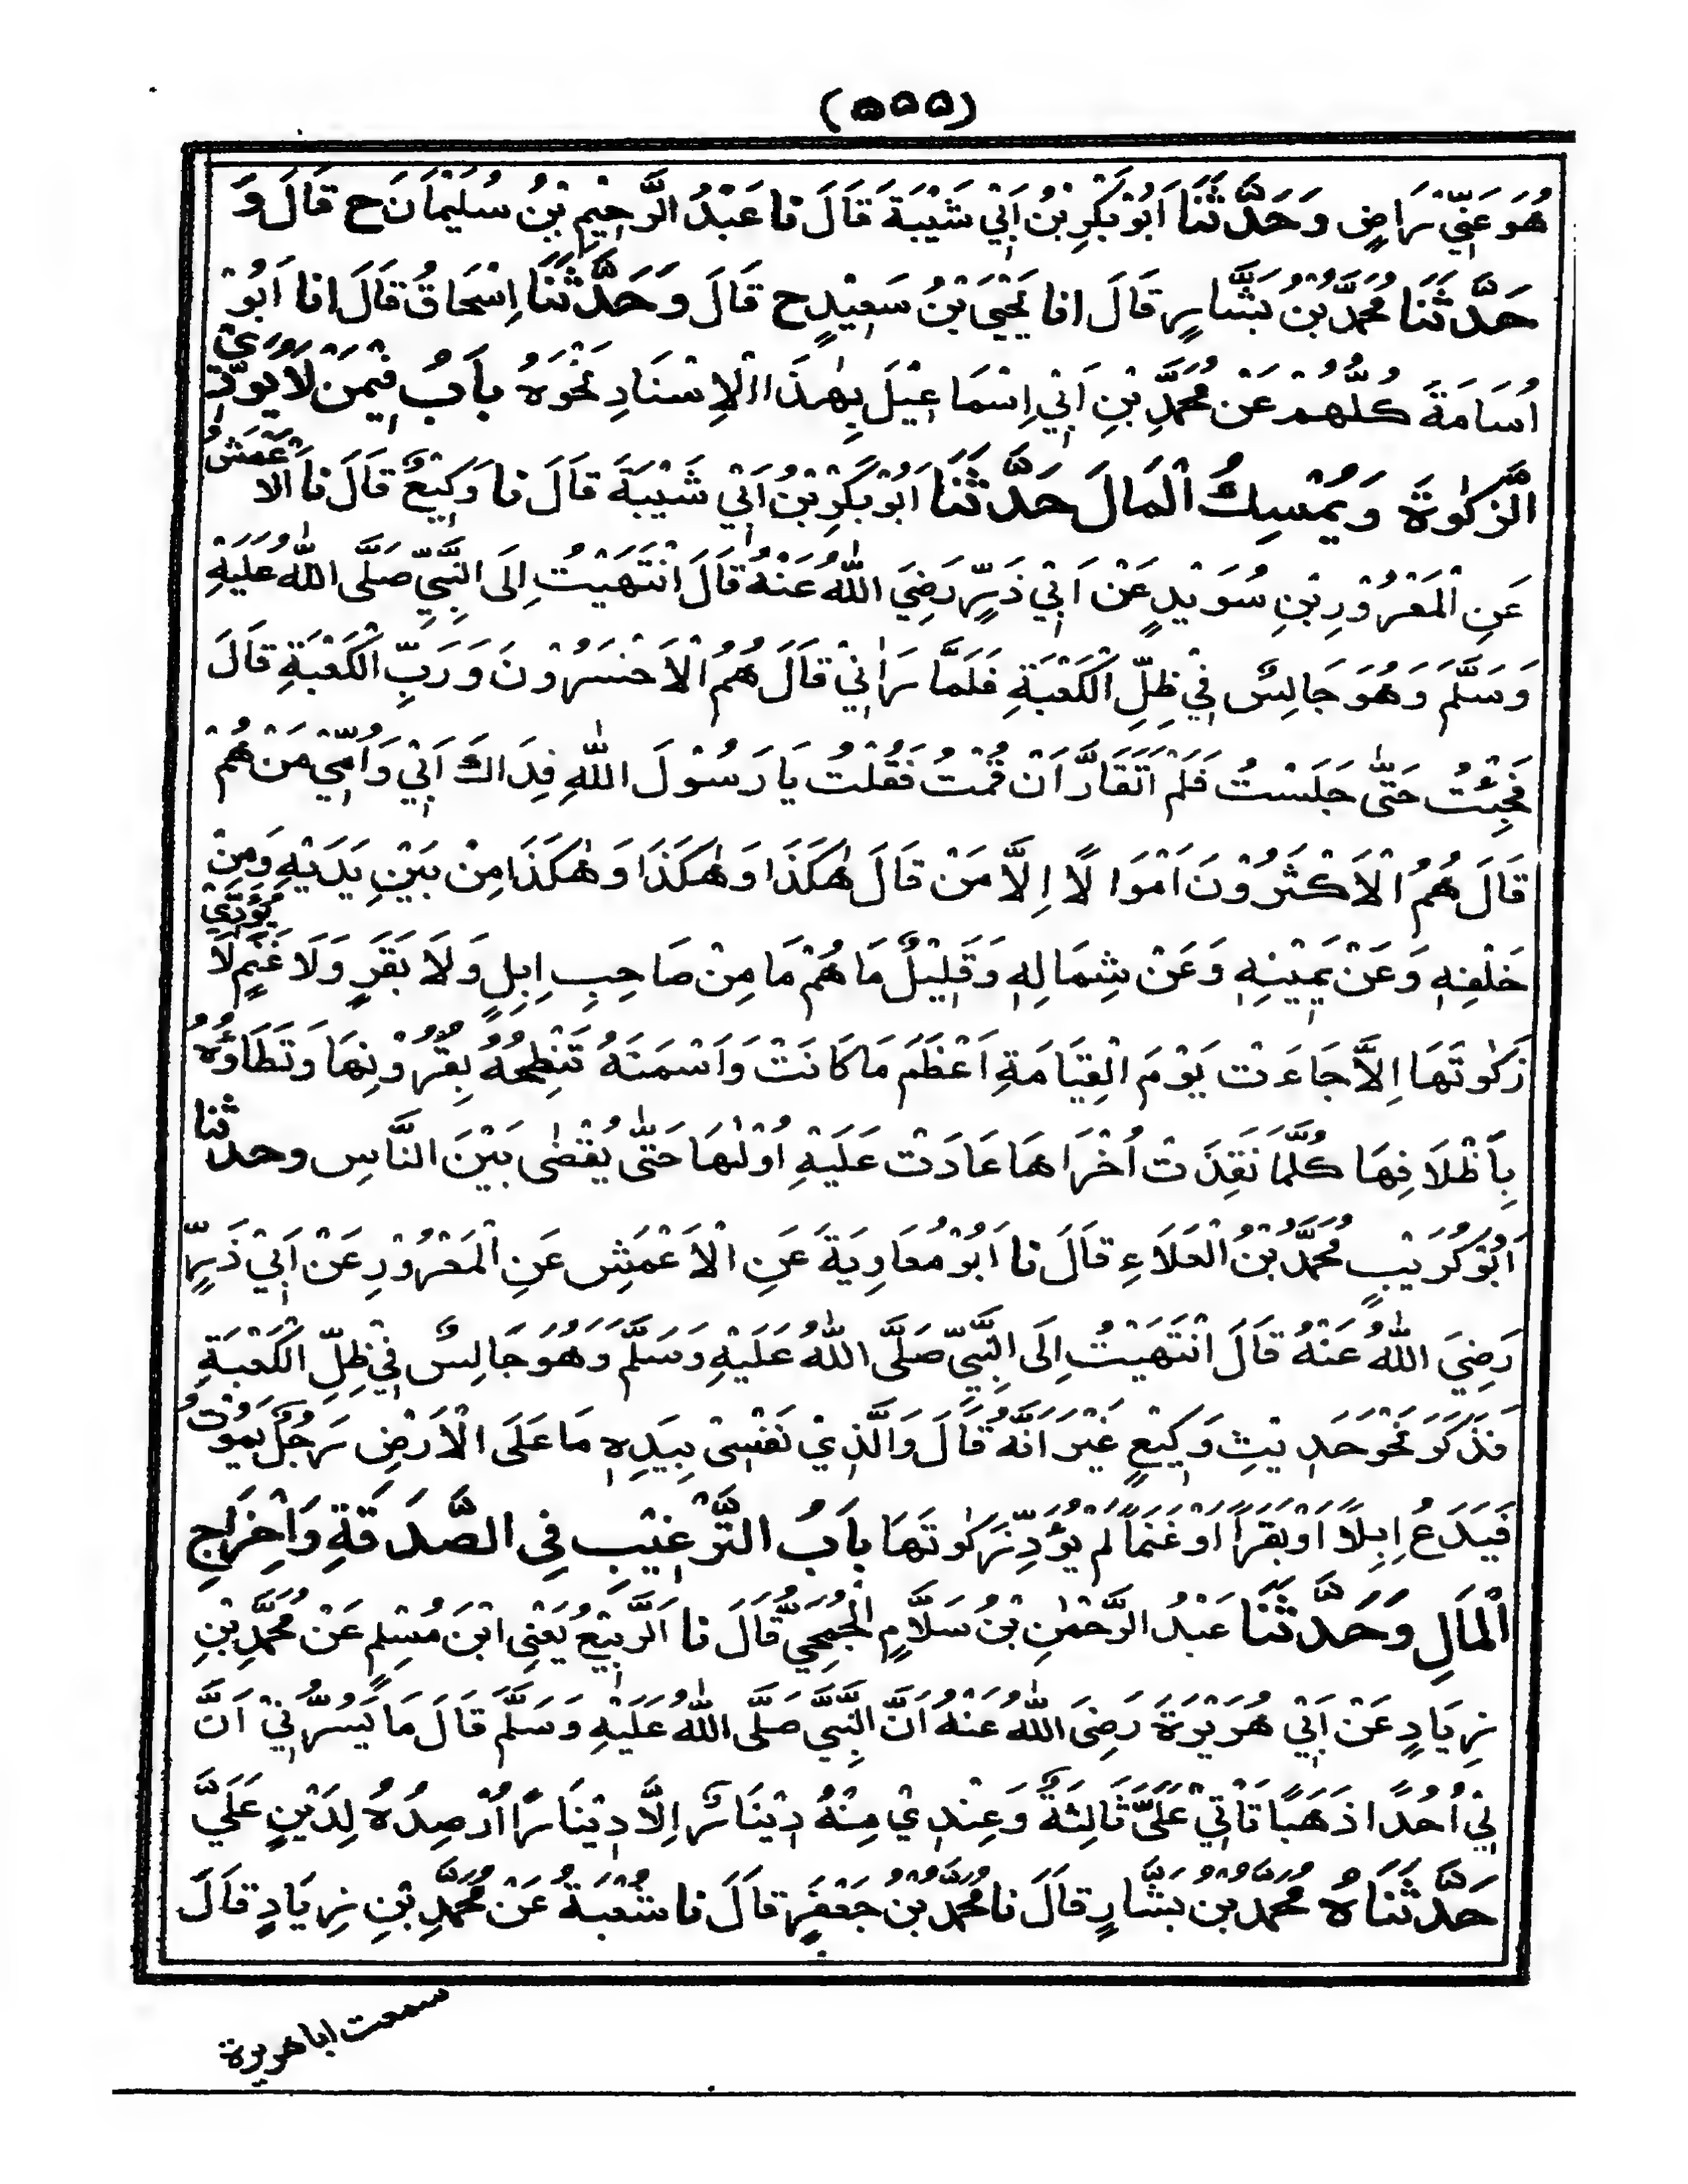 (۵۵۵)
هُوَ عَنِّيْ رَاضٍ وَحَدَّثَنَا اَبُوْبَكْرِ بْنُ اَبِيْ شَيْبَةَ قَالَ نا عَبْدُ الرَّحِيْمِ بْنُ سُلَيْمَانَ ح قَالَ وَ
حَدَّثَنَا مُحَمَّدُ بْنُ بَشَّارٍ قَالَ انا يَحْيَى بْنُ سَعِيْدٍ ح قَالَ وَحَدَّثَنَا اِسْحَاقُ قَالَ انا اَبُوْ
اُسَامَةَ كُلُّهُمْ عَنْ مُحَمَّدِ بْنِ اَبِيْ اِسْمَاعِيْلَ بِهٰذَا الْاِسْنَادِ نَحْوَهُ بَابُ فِيْمَنْ لَا يُوَدِّيْ
الزَّكٰوةَ وَيُمْسِكُ الْمَالَ حَدَّثَنَا اَبُوْبَكْرِ بْنُ اَبِيْ شَيْبَةَ قَالَ نا وَكِيْعٌ قَالَ نا الْاَعْمَشُ
عَنِ الْمَعْرُوْرِ بْنِ سُوَيْدٍ عَنْ اَبِيْ ذَرٍّ رَضِيَ اللّٰهُ عَنْهُ قَالَ انْتَهَيْتُ اِلَى النَّبِيِّ صَلَّى اللّٰهُ عَلَيْهِ
وَسَلَّمَ وَهُوَ جَالِسٌ فِيْ ظِلِّ الْكَعْبَةِ فَلَمَّا رَاٰنِيْ قَالَ هُمُ الْاَخْسَرُوْنَ وَرَبِّ الْكَعْبَةِ قَالَ
فَجِئْتُ حَتّٰى جَلَسْتُ فَلَمْ اَتَقَارَّ اَنْ قُمْتُ فَقُلْتُ يَا رَسُوْلَ اللّٰهِ فِدَاكَ اَبِيْ وَاُمِّيْ مَنْ هُمْ
قَالَ هُمُ الْاَكْثَرُوْنَ اَمْوَالًا اِلَّا مَنْ قَالَ هٰكَذَا وَهٰكَذَا وَهٰكَذَا مِنْ بَيْنِ يَدَيْهِ وَمِنْ
خَلْفِهٖ وَعَنْ يَمِيْنِهٖ وَعَنْ شِمَالِهٖ وَقَلِيْلٌ مَا هُمْ مَا مِنْ صَاحِبِ اِبِلٍ وَلَا بَقَرٍ وَلَا غَنَمٍ لَا يُوَدِّيْ
زَكٰوتَهَا اِلَّا جَاءَتْ يَوْمَ الْقِيَامَةِ اَعْظَمَ مَا كَانَتْ وَاَسْمَنَهُ تَنْطِحُهُ بِقُرُوْنِهَا وَتَطَاؤُهُ
بِاَظْلَافِهَا كُلَّمَا نَفِذَتْ اُخْرَاهَا عَادَتْ عَلَيْهِ اُوْلٰهَا حَتّٰى يُقْضٰى بَيْنَ النَّاسِ وحدثنا
اَبُوْ كُرَيْبٍ مُحَمَّدُ بْنُ الْعَلَاءِ قَالَ نا اَبُوْ مُعَاوِيَةَ عَنِ الْاَعْمَشِ عَنِ الْمَعْرُوْرِ عَنْ اَبِيْ ذَرٍّ
رَضِيَ اللّٰهُ عَنْهُ قَالَ انْتَهَيْتُ اِلَى النَّبِيِّ صَلَّى اللّٰهُ عَلَيْهِ وَسَلَّمَ وَهُوَ جَالِسٌ فِيْ ظِلِّ الْكَعْبَةِ
فَذَكَرَ نَحْوَ حَدِيْثِ وَكِيْعٍ غَيْرَ اَنَّهُ قَالَ وَالَّذِيْ نَفْسِيْ بِيَدِهٖ مَا عَلَى الْاَرْضِ رَجُلٌ يَمُوْتُ
فَيَدَعُ اِبِلًا اَوْ بَقَرًا اَوْ غَنَمًا لَمْ يُؤَدِّ زَكٰوتَهَا بَابُ التَّرْغِيْبِ فِي الصَّدَقَةِ وَاِخْرَاجِ
الْمَالِ وَحَدَّثَنَا عَبْدُ الرَّحْمٰنِ بْنُ سَلَّامٍ الْجُمَحِيُّ قَالَ نا الرَّبِيْعُ يَعْنِى ابْنَ مُسْلِمٍ عَنْ مُحَمَّدِ بْنِ
زِيَادٍ عَنْ اَبِيْ هُرَيْرَةَ رَضِيَ اللّٰهُ عَنْهُ اَنَّ النَّبِيَّ صَلَّى اللّٰهُ عَلَيْهِ وَسَلَّمَ قَالَ مَا يَسُرُّنِيْ اَنَّ
لِيْ اُحُدًا ذَهَبًا تَاْتِيْ عَلَيَّ ثَالِثَةٌ وَعِنْدِيْ مِنْهُ دِيْنَارٌ اِلَّا دِيْنَارًا اُرْصِدُهُ لِدَيْنٍ عَلَيَّ
حَدَّثَنَاهُ مُحَمَّدُ بْنُ بَشَّارٍ قَالَ نا مُحَمَّدُ بْنُ جَعْفَرٍ قَالَ نا شُعْبَةُ عَنْ مُحَمَّدِ بْنِ زِيَادٍ قَالَ
سمعت ابا هريرة